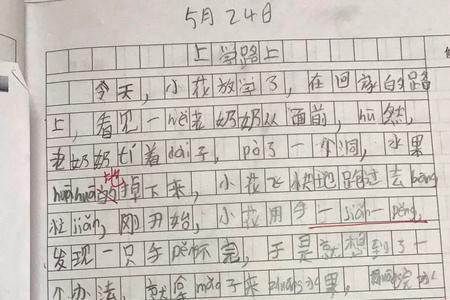 5月24日
上学路上
今天,小花放学了,在回家的路
上,看见一 老奶奶从 面前,hū然,
老奶奶tí着dài子,pò了一个洞,水果
huāhuā地掉下来,小花飞快地跑过去bāng
jiǎn,刚开始,小花用手一jiǎn一pěng,
发现一只手pěng不完,于是就想到了一
个办法,就拿mào子来zhuāng水果,